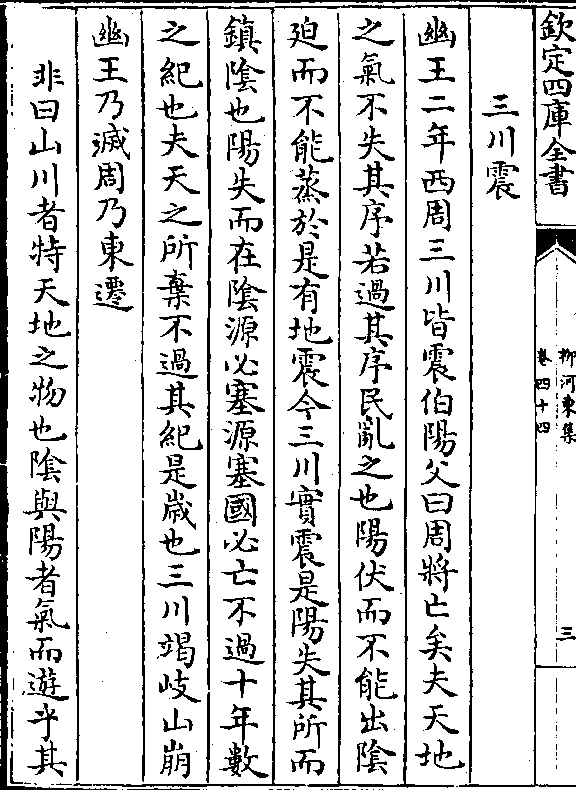 欽定四庫全書
柳河東集
卷四十四
三
三川震
幽王二年西周三川皆震伯陽父曰周將亡矣夫天地
之氣不失其序若過其序民亂之也陽伏而不能出陰
廹而不能蒸於是有地震今三川實震是陽失其所而
鎮陰也陽失而在陰源必塞源塞國必亡不過十年數
之紀也夫天之所棄不過其紀是歳也三川竭岐山崩
幽王乃滅周乃東遷
非曰山川者特天地之物也陰與陽者氣而遊乎其